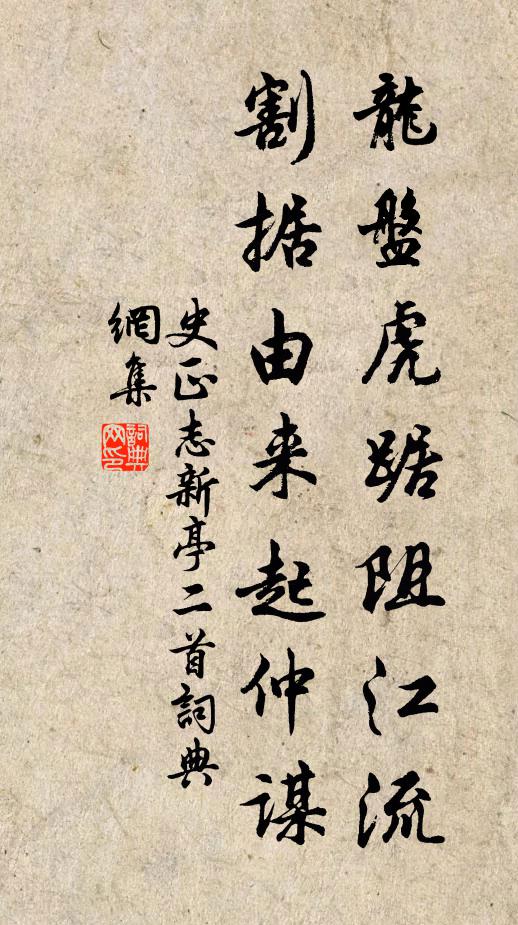 龍盤虎踞阻江流
割据由来起仲謀
史正志新亭二首詞典
網集
詞典
网印